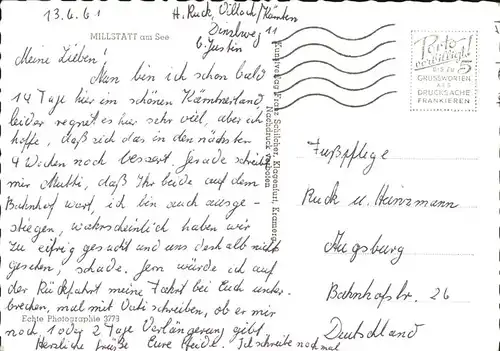 13.6.61
H. Ruck, Villach/Kärnten
Dinzlweg 11
b. Justin
MILLSTATT am See
Meine Lieben!
Nun bin ich schon bald
14 Tage hier im schönen Kärntnerland,
leider regnet es hier sehr viel, aber ich
hoffe, daß sich das in den nächsten
4 Wochen noch bessert. Gerade schreibt
mir Mutti, daß Ihr beide auf dem
Bahnhof wart, ich bin auch ausge-
stiegen, wahrscheinlich haben wir
zu eifrig gesucht und uns deshalb nicht
gesehen, schade. Gern würde ich auf
der Rückfahrt meine Fahrt bei Euch unter-
brechen, mal mit Vati schreiben, ob er mir
noch 1 oder 2 Tage Verlängerung gibt.
Herzliche Grüße Eure Heide. Ich schreibe noch mal
Echte Photographie 3773
Kunstverlag Franz Schilcher, Klagenfurt, Kramerg.
Nachdruck verboten
Porto
verbilligt!
BIS ZU 5
GRUSSWORTEN
ALS
DRUCKSACHE
FRANKIEREN
Fußpflege
Ruck u. Heinzmann
Augsburg
Bahnhofstr. 26
Deutschland